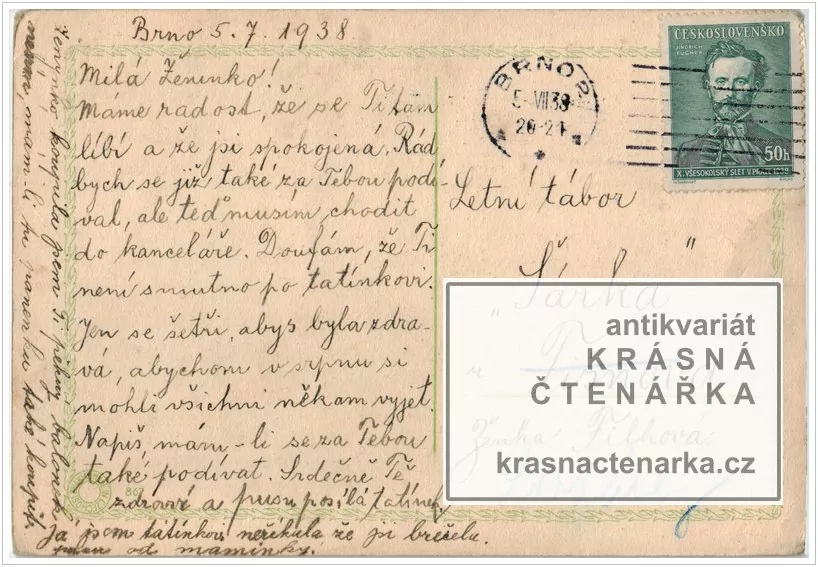 Brno 5. 7. 1938
Milá Ženinko!
Máme radost, že se Ti tam
líbí a že jsi spokojená. Rád
bych se již také za Tebou podí-
val, ale teď musím chodit
do kanceláře. Doufám, že Ti
není smutno po tatínkovi.
Jen se šetři, abys byla zdra-
vá, abychom v srpnu si
mohli všichni někam vyjet.
Napiš, mám-li se za Tebou
také podívat. Srdečně Tě
zdraví a pusu posílá tatínek.
Já jsem tatínkovi neříkala že jsi brečela.
od maminky.
koupila jsem Ti pěkný
mám-li tu panenku také koupit.
BRNO 2
5.-VII 38
20-21
ČESKOSLOVENSKO
JINDŘICH
FÜGNER
50h
X. VŠESOKOLSKÝ SLET V PRAZE 1938
Letní tábor
„Šárka"
u
Ženka
antikvariát
KRÁSNÁ
ČTENÁŘKA
krasnactenarka.cz